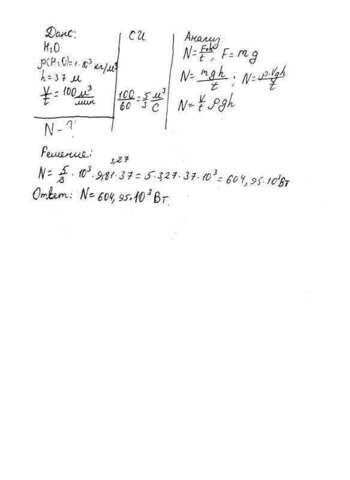 Дано:
H₂O
ρ(H₂O)=1·10³ кг/м³
h=37 м
V/t = 100 м³/мин
N-?
СИ
100/60 = 5/3 м³/с
Анализ
N = Fh/t; F = mg
N = mgh/t; N = ρ·Vgh/t
N = V/t ρgh
Решение:
3,27
N = 5/3 · 10³ · 9,81 · 37 = 5 · 3,27 · 37 · 10³ = 604,95·10³ Вт
Ответ: N = 604,95·10³ Вт.